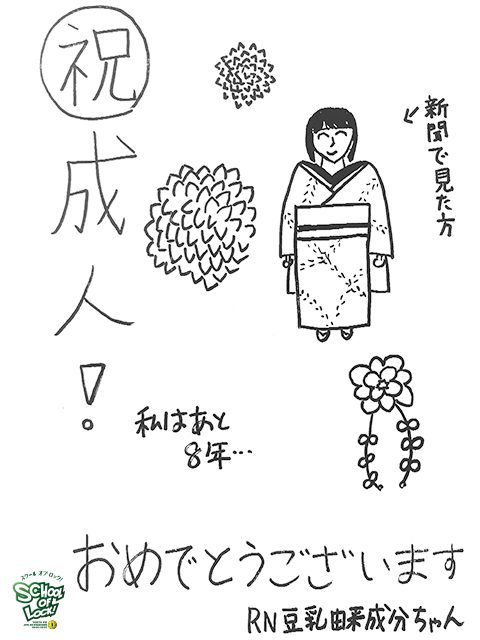 祝成人!
新聞で見た方
私はあと
8年…
おめでとうございます
RN豆乳由来成分ちゃん
スクール オブ ロック!
SCHOOL
OF
LOCK!